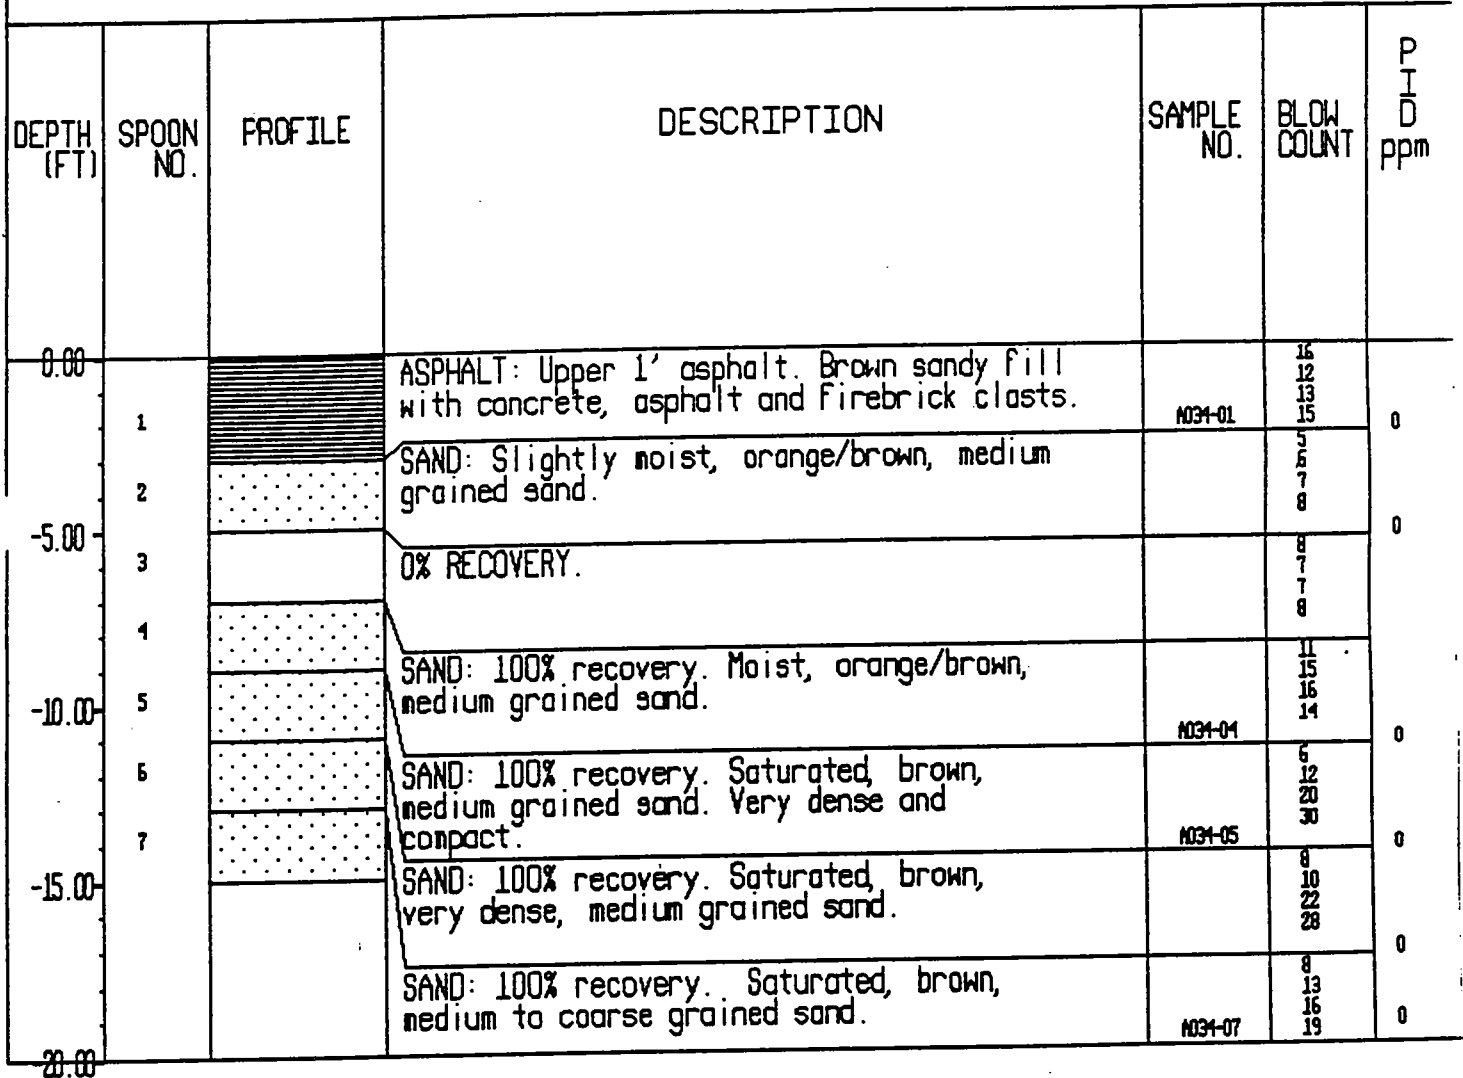 DEPTH (FT)
SPOON NO.
PROFILE
DESCRIPTION
SAMPLE NO.
BLOW COUNT
PID ppm
0.00
-5.00
-10.00
-15.00
-20.00
1
2
3
4
5
6
7
ASPHALT: Upper 1' asphalt. Brown sandy fill
with concrete, asphalt and firebrick clasts.
A034-01
16
12
13
15
0
SAND: Slightly moist, orange/brown, medium
grained sand.
5
6
7
8
0
0% RECOVERY.
8
7
7
8
SAND: 100% recovery. Moist, orange/brown,
medium grained sand.
A034-04
11
15
16
14
0
SAND: 100% recovery. Saturated, brown,
medium grained sand. Very dense and
compact.
A034-05
6
12
20
30
0
SAND: 100% recovery. Saturated, brown,
very dense, medium grained sand.
8
10
22
28
0
SAND: 100% recovery. Saturated, brown,
medium to coarse grained sand.
A034-07
8
13
16
19
0